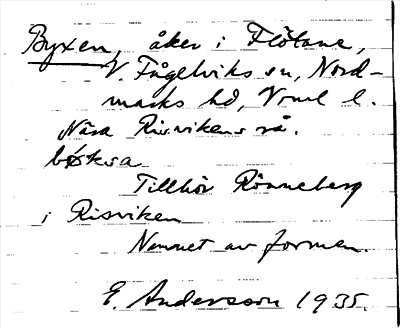 Byxen, åker i Flötane,
V. Fågelviks sn, Nord-
marks hd, Vrml l.
Nära Risvikens rå.
bøksa
Tillhör Rönneberg
i Risviken
Namnet av formen.
E. Andersson 1935.